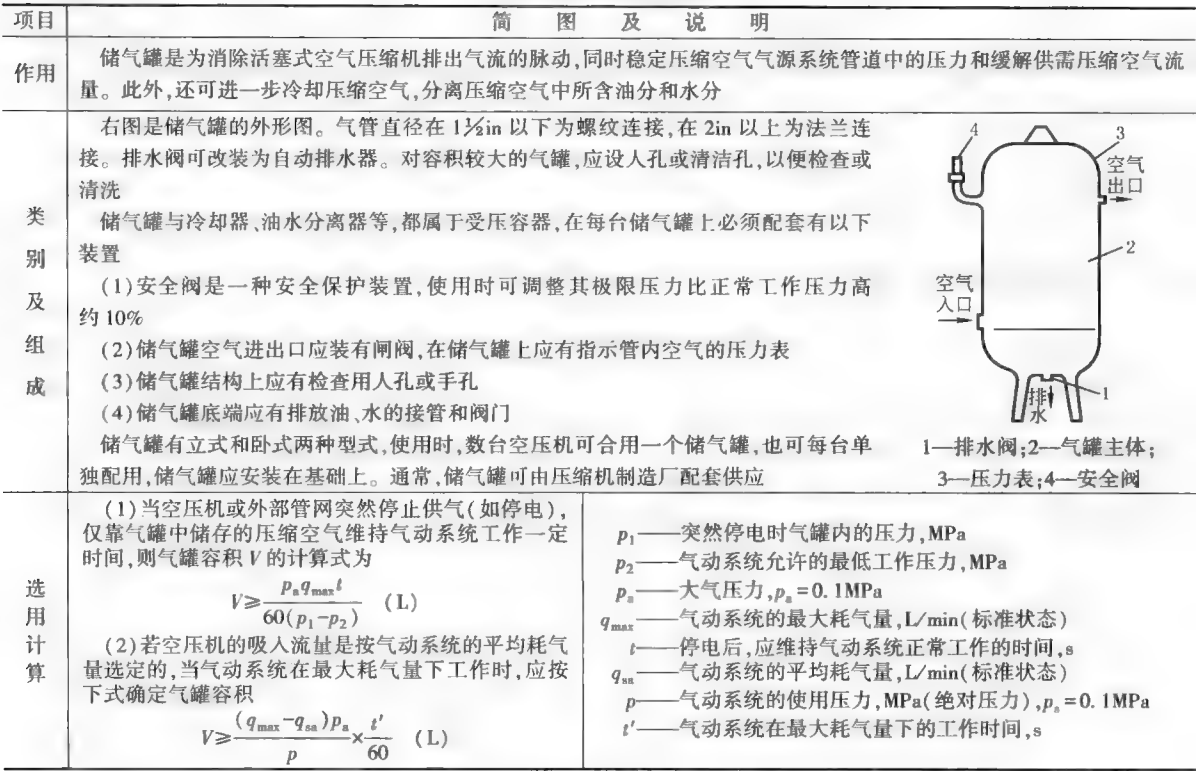 项目 简图及说明
作用
储气罐是为消除活塞式空气压缩机排出气流的脉动,同时稳定压缩空气气源系统管道中的压力和缓解供需压缩空气流
量。此外,还可进一步冷却压缩空气,分离压缩空气中所含油分和水分
类别及组成
右图是储气罐的外形图。气管直径在 1½in 以下为螺纹连接,在 2in 以上为法兰连
接。排水阀可改装为自动排水器。对容积较大的气罐,应设人孔或清洁孔,以便检查或
清洗
储气罐与冷却器、油水分离器等,都属于受压容器,在每台储气罐上必须配套有以下
装置
(1)安全阀是一种安全保护装置,使用时可调整其极限压力比正常工作压力高
约 10%
(2)储气罐空气进出口应装有闸阀,在储气罐上应有指示管内空气的压力表
(3)储气罐结构上应有检查用人孔或手孔
(4)储气罐底端应有排放油、水的接管和阀门
储气罐有立式和卧式两种型式,使用时,数台空压机可合用一个储气罐,也可每台单
独配用,储气罐应安装在基础上。通常,储气罐可由压缩机制造厂配套供应
4
3
空气
出口
2
空气
入口
1
排
水
1—排水阀;2—气罐主体;
3—压力表;4—安全阀
选用计算
(1)当空压机或外部管网突然停止供气(如停电),
仅靠气罐中储存的压缩空气维持气动系统工作一定
时间,则气罐容积 V 的计算式为
V≥pₐq_max t/60(p₁-p₂) (L)
(2)若空压机的吸入流量是按气动系统的平均耗气
量选定的,当气动系统在最大耗气量下工作时,应按
下式确定气罐容积
V≥(q_max-q_sa)pₐ/p×t′/60 (L)
p₁——突然停电时气罐内的压力,MPa
p₂——气动系统允许的最低工作压力,MPa
pₐ——大气压力,pₐ=0.1MPa
q_max——气动系统的最大耗气量,L/min(标准状态)
t——停电后,应维持气动系统正常工作的时间,s
q_sa——气动系统的平均耗气量,L/min(标准状态)
p——气动系统的使用压力,MPa(绝对压力),pₐ=0.1MPa
t′——气动系统在最大耗气量下的工作时间,s